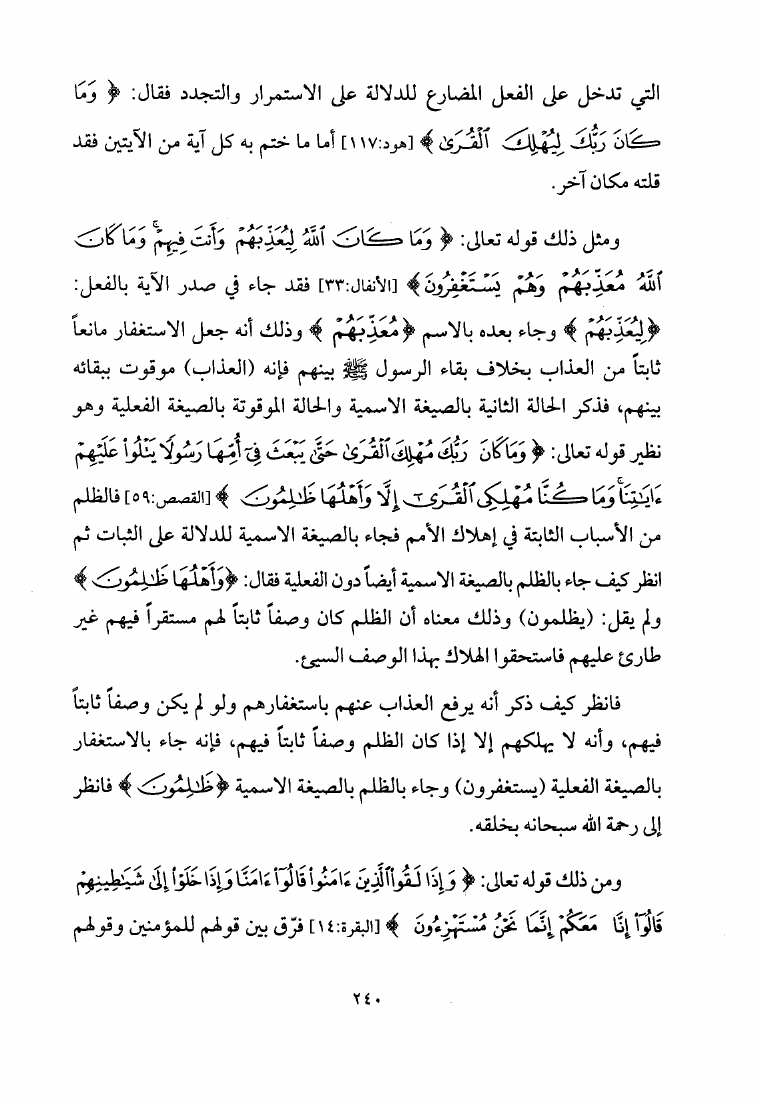 التي تدخل على الفعل المضارع للدلالة على الاستمرار والتجدد فقال: ﴿ وَمَا
كَانَ رَبُّكَ لِيُهْلِكَ ٱلْقُرَىٰ ﴾ [هود:١١٧] أما ما ختم به كل آية من الآيتين فقد
قلته مكان آخر.
ومثل ذلك قوله تعالى: ﴿ وَمَا كَانَ ٱللَّهُ لِيُعَذِّبَهُمْ وَأَنتَ فِيهِمْ ۚ وَمَا كَانَ
ٱللَّهُ مُعَذِّبَهُمْ وَهُمْ يَسْتَغْفِرُونَ ﴾ [الأنفال:٣٣] فقد جاء في صدر الآية بالفعل:
﴿ لِيُعَذِّبَهُمْ ﴾ وجاء بعده بالاسم ﴿ مُعَذِّبَهُمْ ﴾ وذلك أنه جعل الاستغفار مانعاً
ثابتاً من العذاب بخلاف بقاء الرسول ﷺ بينهم فإنه (العذاب) موقوت ببقائه
بينهم، فذكر الحالة الثانية بالصيغة الاسمية والحالة الموقوتة بالصيغة الفعلية وهو
نظير قوله تعالى: ﴿ وَمَا كَانَ رَبُّكَ مُهْلِكَ ٱلْقُرَىٰ حَتَّىٰ يَبْعَثَ فِىٓ أُمِّهَا رَسُولًا يَتْلُوا۟ عَلَيْهِمْ
ءَايَٰتِنَا ۚ وَمَا كُنَّا مُهْلِكِى ٱلْقُرَىٰٓ إِلَّا وَأَهْلُهَا ظَٰلِمُونَ ﴾ [القصص:٥٩] فالظلم
من الأسباب الثابتة في إهلاك الأمم فجاء بالصيغة الاسمية للدلالة على الثبات ثم
انظر كيف جاء بالظلم بالصيغة الاسمية أيضاً دون الفعلية فقال: ﴿ وَأَهْلُهَا ظَٰلِمُونَ ﴾
ولم يقل: (يظلمون) وذلك معناه أن الظلم كان وصفاً ثابتاً لهم مستقراً فيهم غير
طارئ عليهم فاستحقوا الهلاك بهذا الوصف السيئ.
فانظر كيف ذكر أنه يرفع العذاب عنهم باستغفارهم ولو لم يكن وصفاً ثابتاً
فيهم، وأنه لا يهلكهم إلا إذا كان الظلم وصفاً ثابتاً فيهم، فإنه جاء بالاستغفار
بالصيغة الفعلية (يستغفرون) وجاء بالظلم بالصيغة الاسمية ﴿ ظَٰلِمُونَ ﴾ فانظر
إلى رحمة الله سبحانه بخلقه.
ومن ذلك قوله تعالى: ﴿ وَإِذَا لَقُوا۟ ٱلَّذِينَ ءَامَنُوا۟ قَالُوٓا۟ ءَامَنَّا وَإِذَا خَلَوْا۟ إِلَىٰ شَيَٰطِينِهِمْ
قَالُوٓا۟ إِنَّا مَعَكُمْ إِنَّمَا نَحْنُ مُسْتَهْزِءُونَ ﴾ [البقرة:١٤] فرّق بين قولهم للمؤمنين وقولهم
٢٤٠